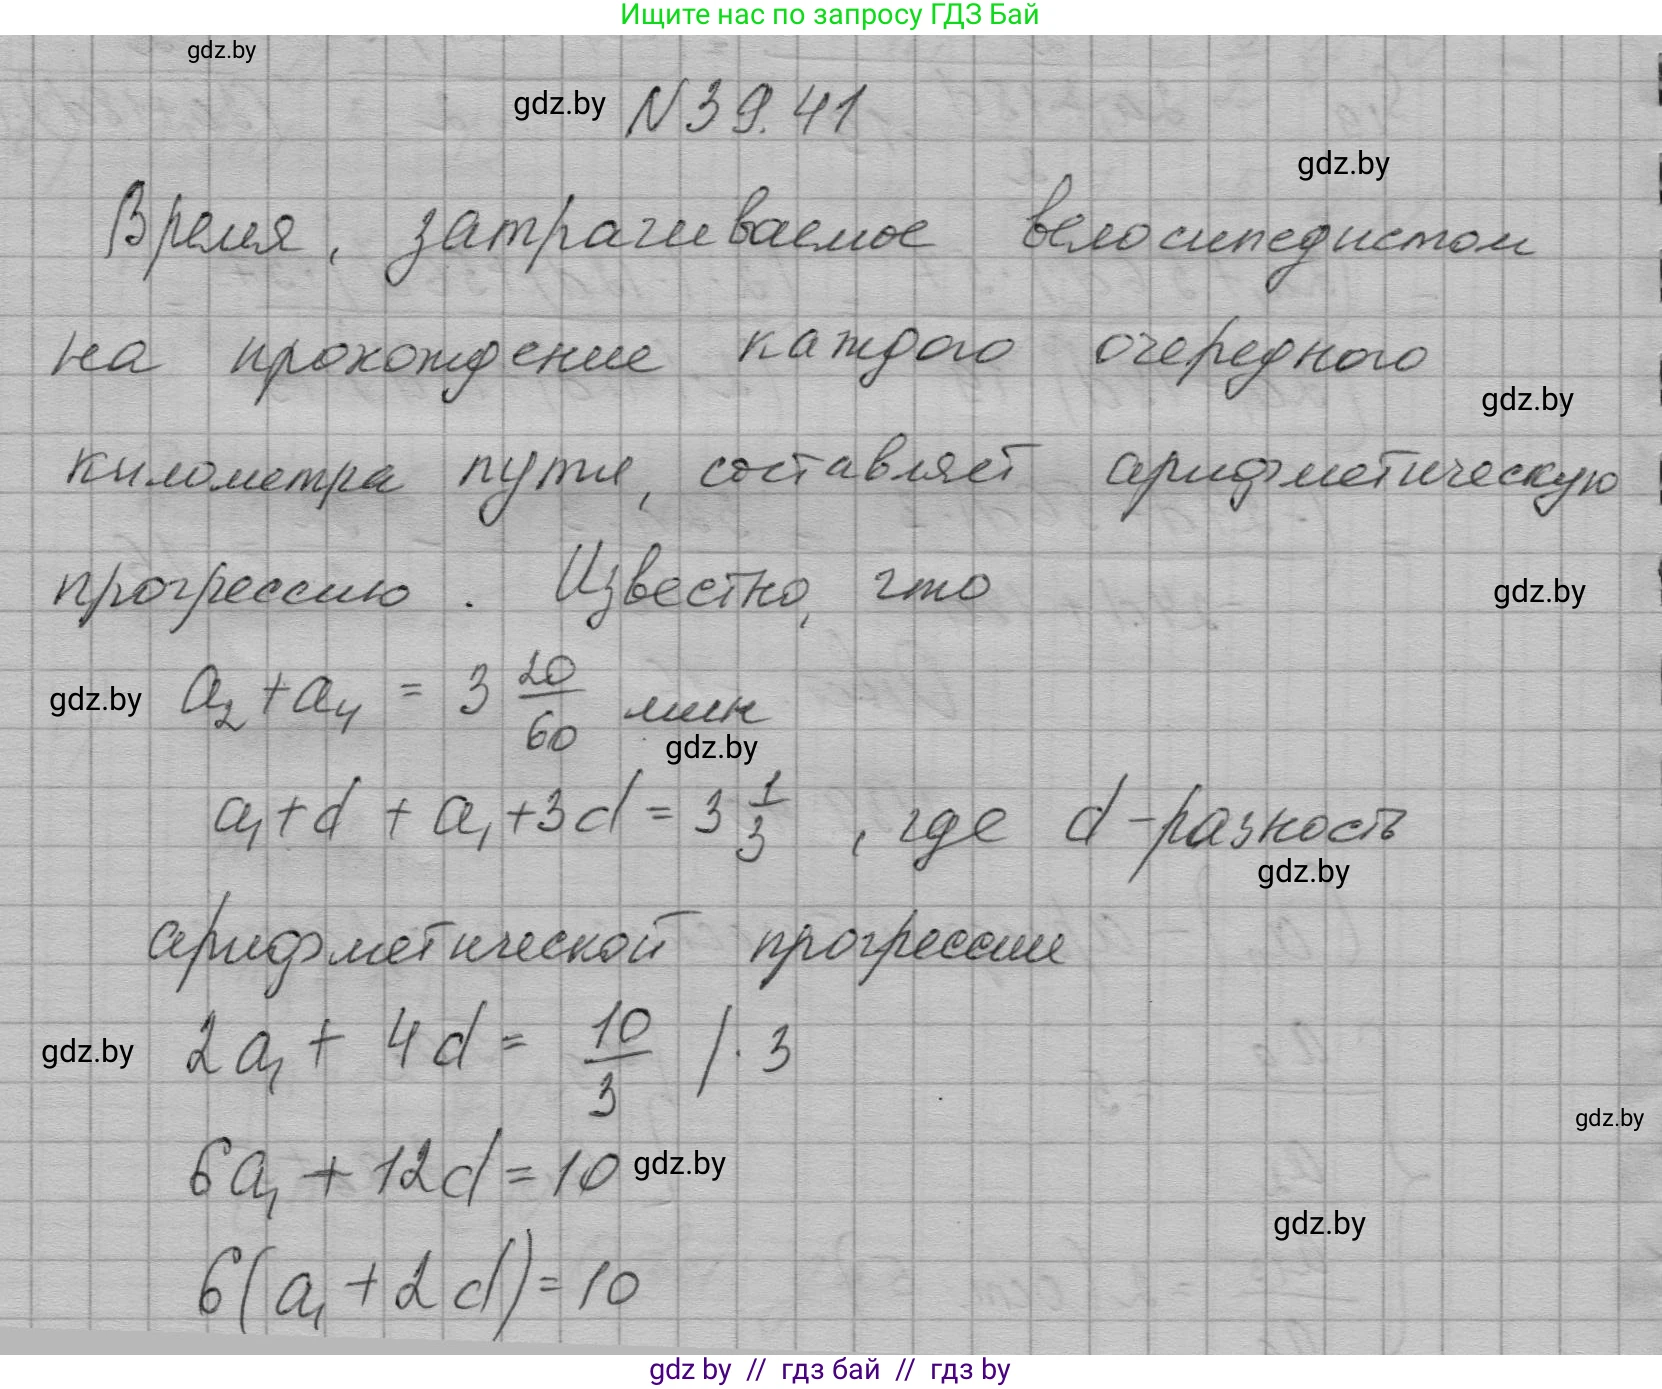 Ищите нас по запросу ГДЗ Бай
gdz.by
gdz.by N 39.41
gdz.by
Время, затрачиваемое велосипедистом
на прохождение каждого очередного
gdz.by
километра пути, составляет арифметическую
прогрессию. Известно, что
gdz.by
gdz.by a₂ + a₄ = 3 20/60 мин
gdz.by
a₁ + d + a₁ + 3d = 3 1/3, где d - разность
gdz.by
арифметической прогрессии
gdz.by 2a₁ + 4d = 10/3 / · 3
gdz.by
6a₁ + 12d = 10 gdz.by
gdz.by
6(a₁ + 2d) = 10
gdz by // гдз бай // гдз by